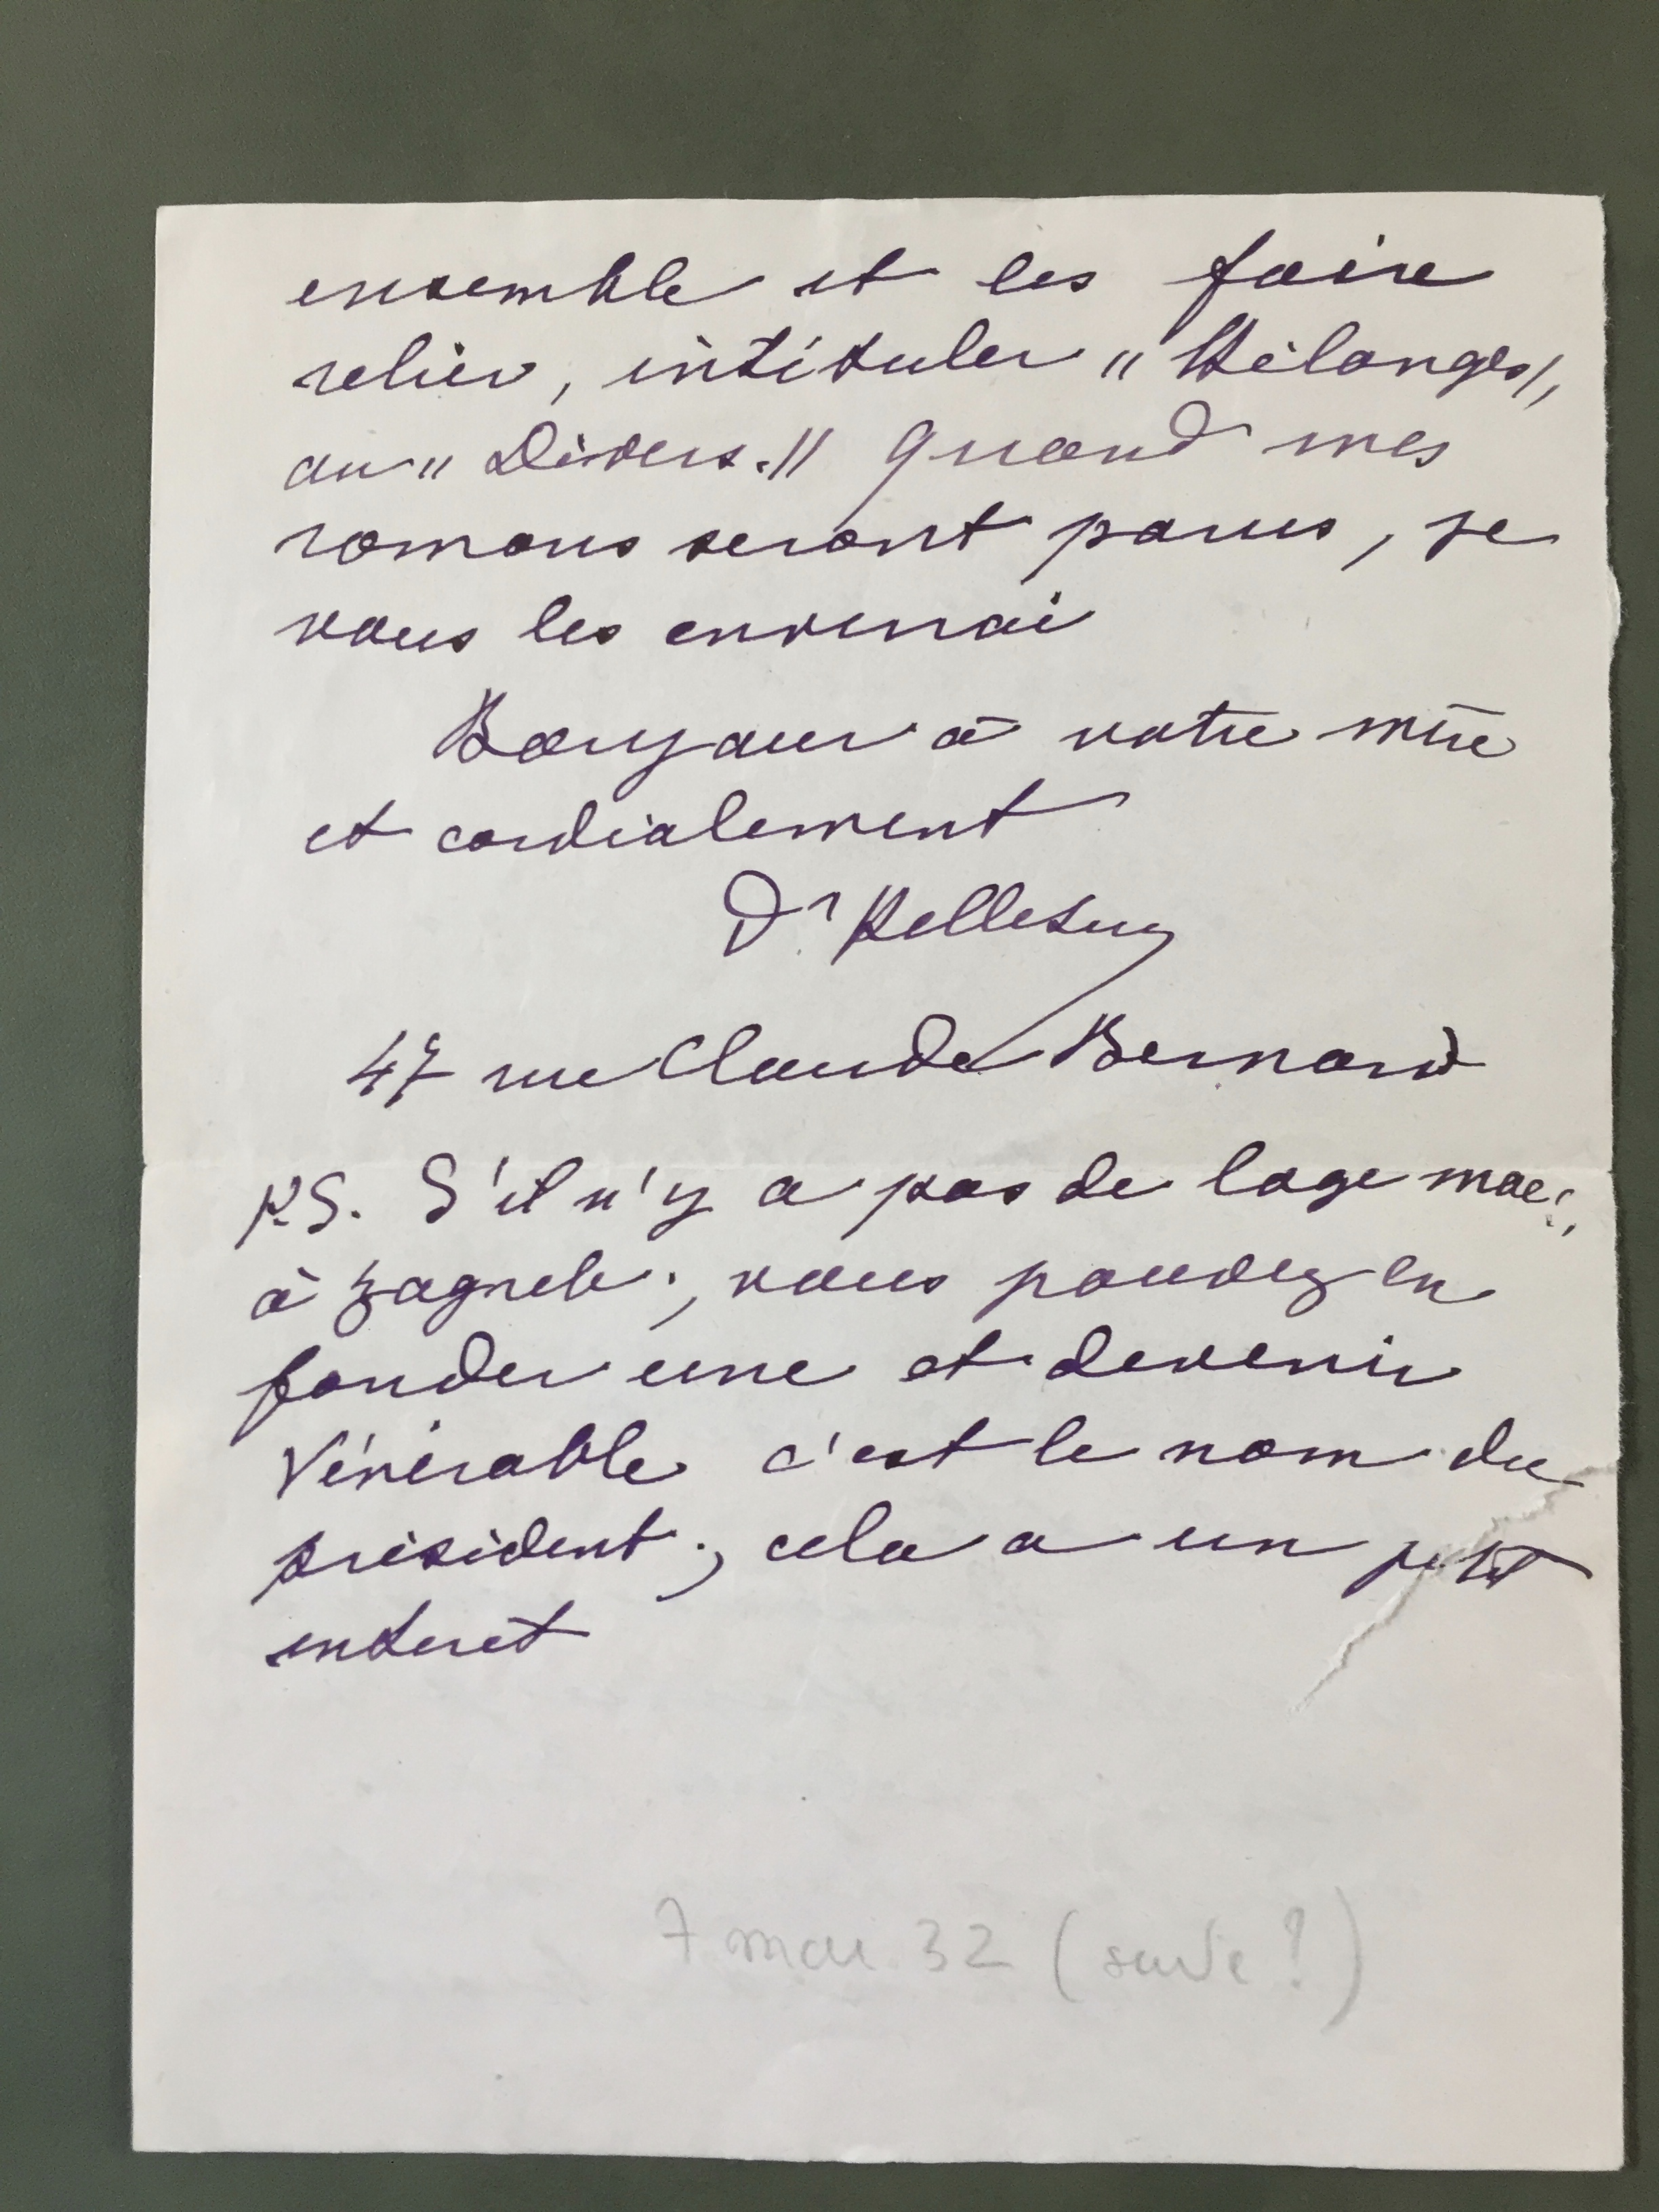 ensemble et les faire
relier, intituler " Mélanges",
ou " Divers." Quand mes
romans seront parus, je
vous les enverrai
Bonjour à votre mère
et cordialement
Dr Pelletier
47 rue Claude Bernard
P.S. S'il n'y a pas de loge maç.,
à Zagreb, vous pouvez en
fonder une et devenir
Vénérable c'est le nom du
président ; cela a un petit
interet
7 mai 32 (suite ?)